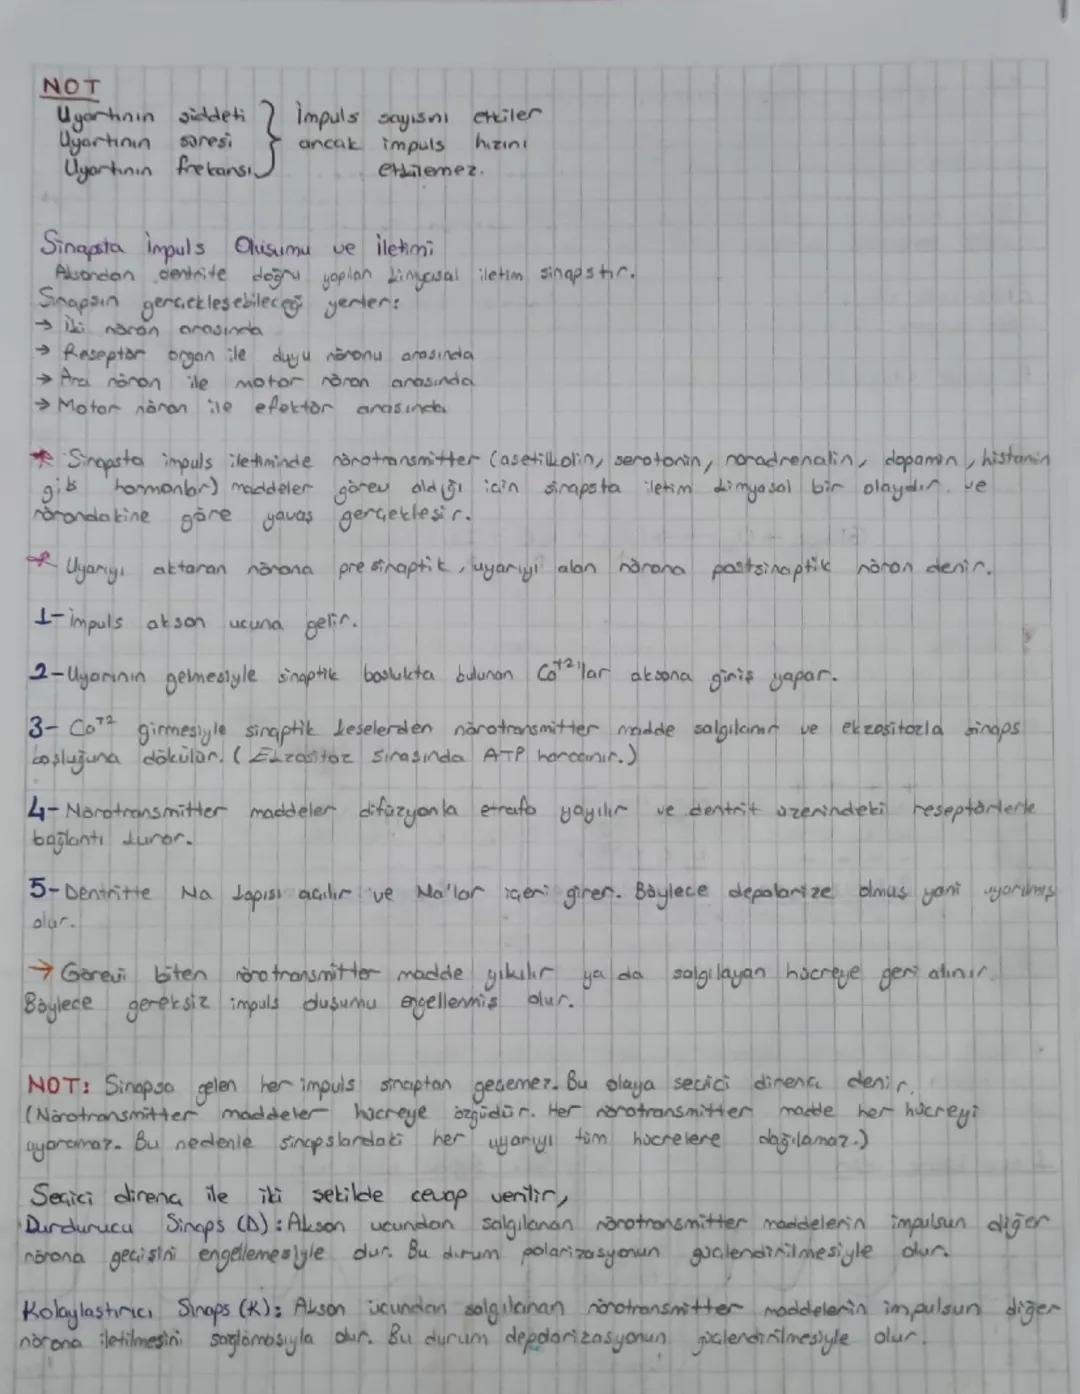 NOT
Uyartının şiddeti } İmpuls sayısını etkiler
Uyartının süresi } ancak impuls hızını
Uyartının frekansı } etkilemez.
Sinapsta İmpuls Oluşumu ve İletimi
Aksondan dentrite doğru yapılan kimyasal iletim sinapstır.
Sinapsın gerçekleşebileceği yerler:
→ İki nöron arasında
→ Reseptör organ ile duyu nöronu arasında
→ Ara nöron ile motor nöron arasında
→ Motor nöron ile efektör arasında
* Sinapsta impuls iletiminde nörotransmitter (asetilkolin, serotonin, noradrenalin, dopamin, histamin
gibi hormonlar) maddeler görev aldığı için sinapsta iletim kimyasal bir olaydır. ve
nörondakine göre yavaş gerçekleşir.
* Uyarıyı aktaran nörona presinaptik, uyarıyı alan nörona postsinaptik nöron denir.
1- İmpuls akson ucuna gelir.
2- Uyarının gelmesiyle sinaptik boşlukta bulunan Ca⁺²'lar aksona giriş yapar.
3- Ca⁺² girmesiyle sinaptik keselerden nörotransmitter madde salgılanır ve ekzositozla sinaps
boşluğuna dökülür. (Ekzositoz sırasında ATP harcanır.)
4- Nörotransmitter maddeler difüzyonla etrafa yayılır ve dentrit üzerindeki reseptörlerle
bağlantı kurar.
5- Dentritte Na kapısı açılır ve Na'lar içeri girer. Böylece depolarize olmuş yani uyarılmış
olur.
→ Görevi biten nörotransmitter madde yıkılır ya da salgılayan hücreye geri alınır.
Böylece gereksiz impuls oluşumu engellenmiş olur.
NOT: Sinapsa gelen her impuls sinaptan geçemez. Bu olaya seçici direnç denir.
(Nörotransmitter maddeler hücreye özgüdür. Her nörotransmitter madde her hücreyi
uyaramaz. Bu nedenle sinapslardaki her uyarıyı tüm hücrelere dağılamaz.)
Seçici direnç ile iki şekilde cevap verilir,
Durdurucu Sinaps (D): Akson ucundan salgılanan nörotransmitter maddelerin impulsun diğer
nörona geçişini engellemesiyle olur. Bu durum polarizasyonun güçlendirilmesiyle olur.
Kolaylaştırıcı Sinaps (K): Akson ucundan salgılanan nörotransmitter maddelerin impulsun diğer
nörona iletilmesini sağlamasıyla olur. Bu durum depolarizasyonun güçlendirilmesiyle olur.